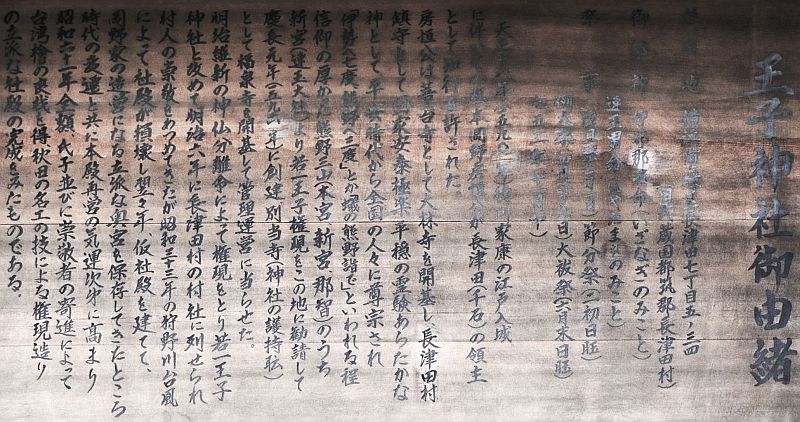 王子神社御由緒
鎮座地 横浜市緑区長津田七丁目五ノ三四
旧武蔵国都筑郡長津田村)
御祭神 伊弉那岐命(いざなぎのみこと)
速玉男命(はやたまをのみこと)
祭事 節分祭(初日旺)
大祓祭(六月末日旺)
天正十八年(一五九〇年)徳川家康の江戸入城
に伴い 岡野房恒公が長津田(千石)の領主
として知行を許された。
房恒公は菩台寺として大林寺を開基し、長津田村
鎮守として国家安泰極楽平穏の霊験あらたかな
神として平安時代から全国の人々に尊宗され
伊勢へ七度、熊野へ三度」とか「蟻の熊野詣で」といわれる程
信仰の厚かった熊野三山(本宮 新宮 那智)のうち
新宮(速玉大社)より若一王子権現をこの地に勧請して
慶長元年(一五九六年)に創建、別当寺(神社の護持転)
として福泉寺を開基して管理運営に当らせた。
明治維新の神仏分離令によって権現をとり若一王子
神社と改めて明治六年に長津田村の村社に列せられ
村人の崇敬をあつめてきたが昭和三十三年の狩野川台風
によって社殿が損壊し翌々年仮社殿を建てて、
岡野家の造営になる立派な奥宮を保存してきたところ
時代の変遷と共に本殿再営の気運次第に高まり
昭和六十一年全額、氏子並びに崇敬者の寄進によって
台湾檜の良材を得秋田の名工の技による権現造り
の立派な社殿の完成をみたものである。